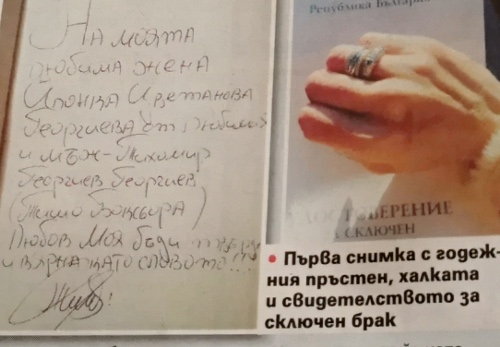 На моята
любима жена
Илонка Цветанова
Георгиева от любимия
и мъж - Тихомир
Георгиев Георгиев
(Тишо Боксьора)
Любов Моя бъди
и вярна като словото!!!
Република България
УДОСТОВЕРЕНИЕ
СКЛЮЧЕН
• Първа снимка с годеж-
ния пръстен, халката
и свидетелството за
сключен брак